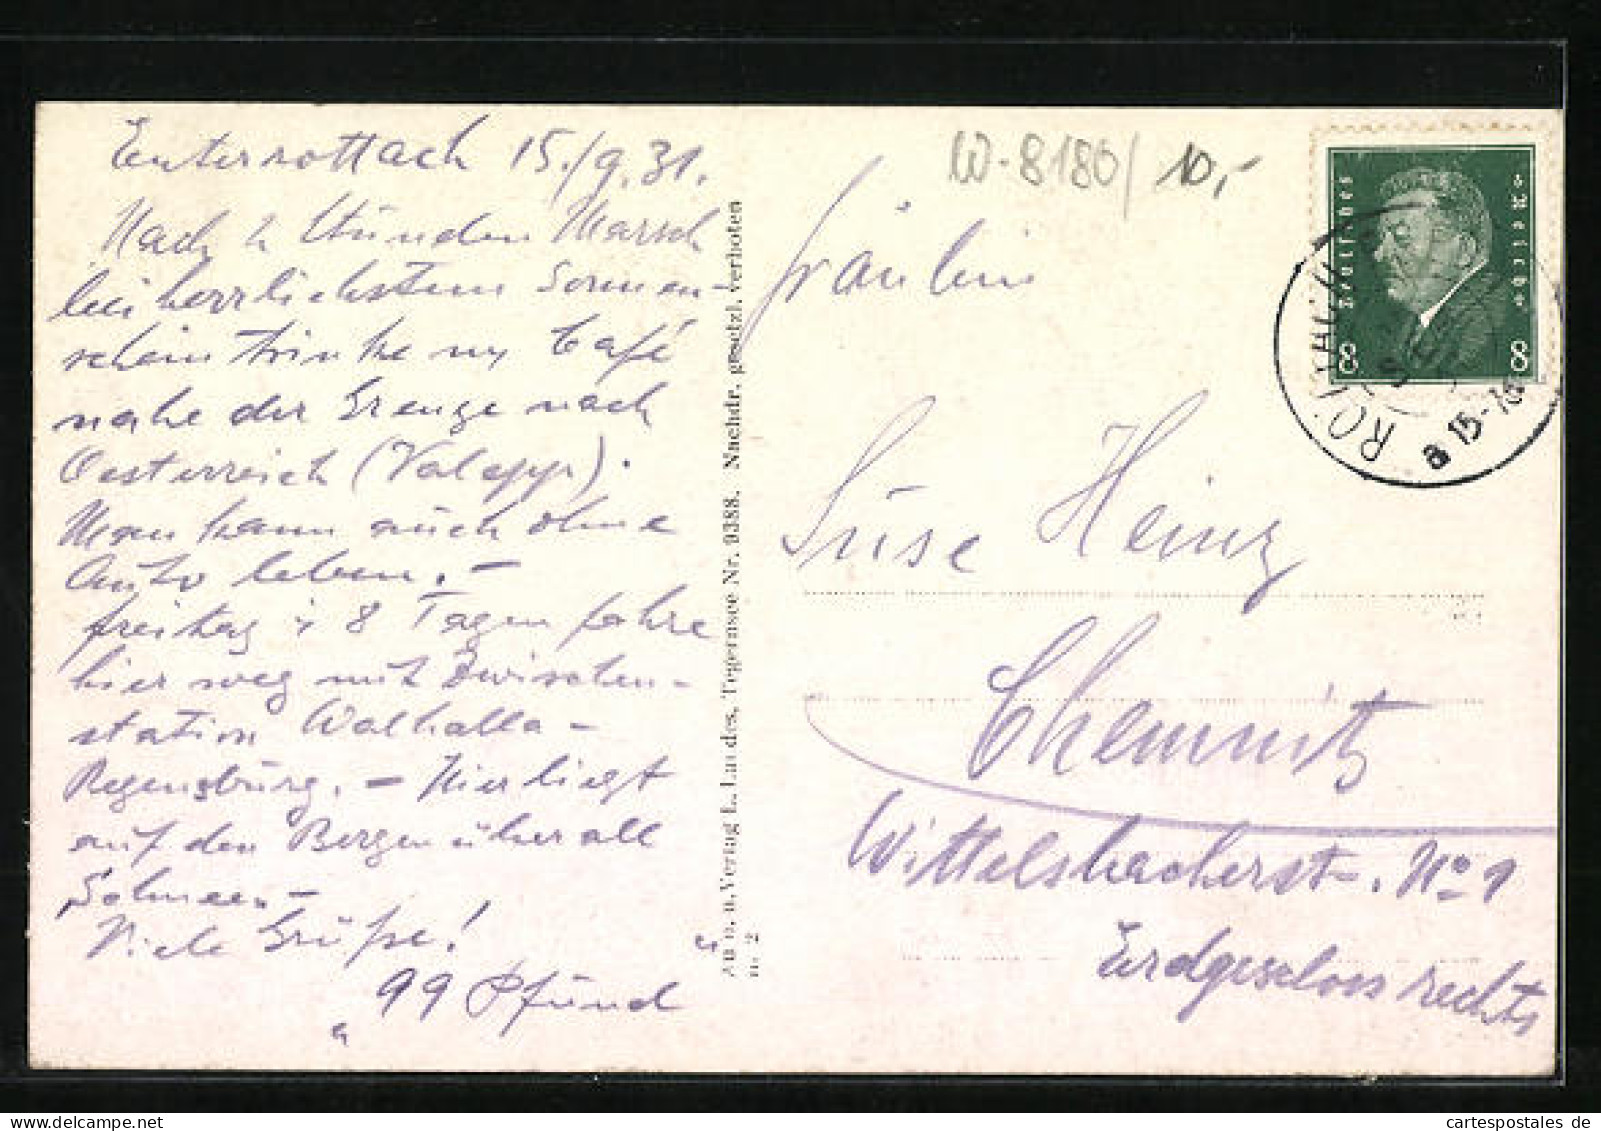 Enterrottach 15./9.31.
Nach 2 Stunden Marsch
bei herrlichstem Sonnen-
schein trinke Café
nahe der Grenze nach
Oesterreich (Valepp).
Man kann auch ohne
Auto leben. –
Freitag i 8 Tagen fahre
hier weg mit Zwischen-
station Walhalla –
Regensburg. – Hier liegt
auf den Bergen überall
Schnee. –
Viele Grüße!
„99 Pfund“
Verlag L. Nr. 9388. Nachdr. gesetzl. verboten
W-8180/10,-
Deutsches Reich
8 8
a 15-16
Fräulein
Suse Heinz
Chemnitz
Wittelsbacherstr. No 9
Erdgeschoss rechts
cartespostales de